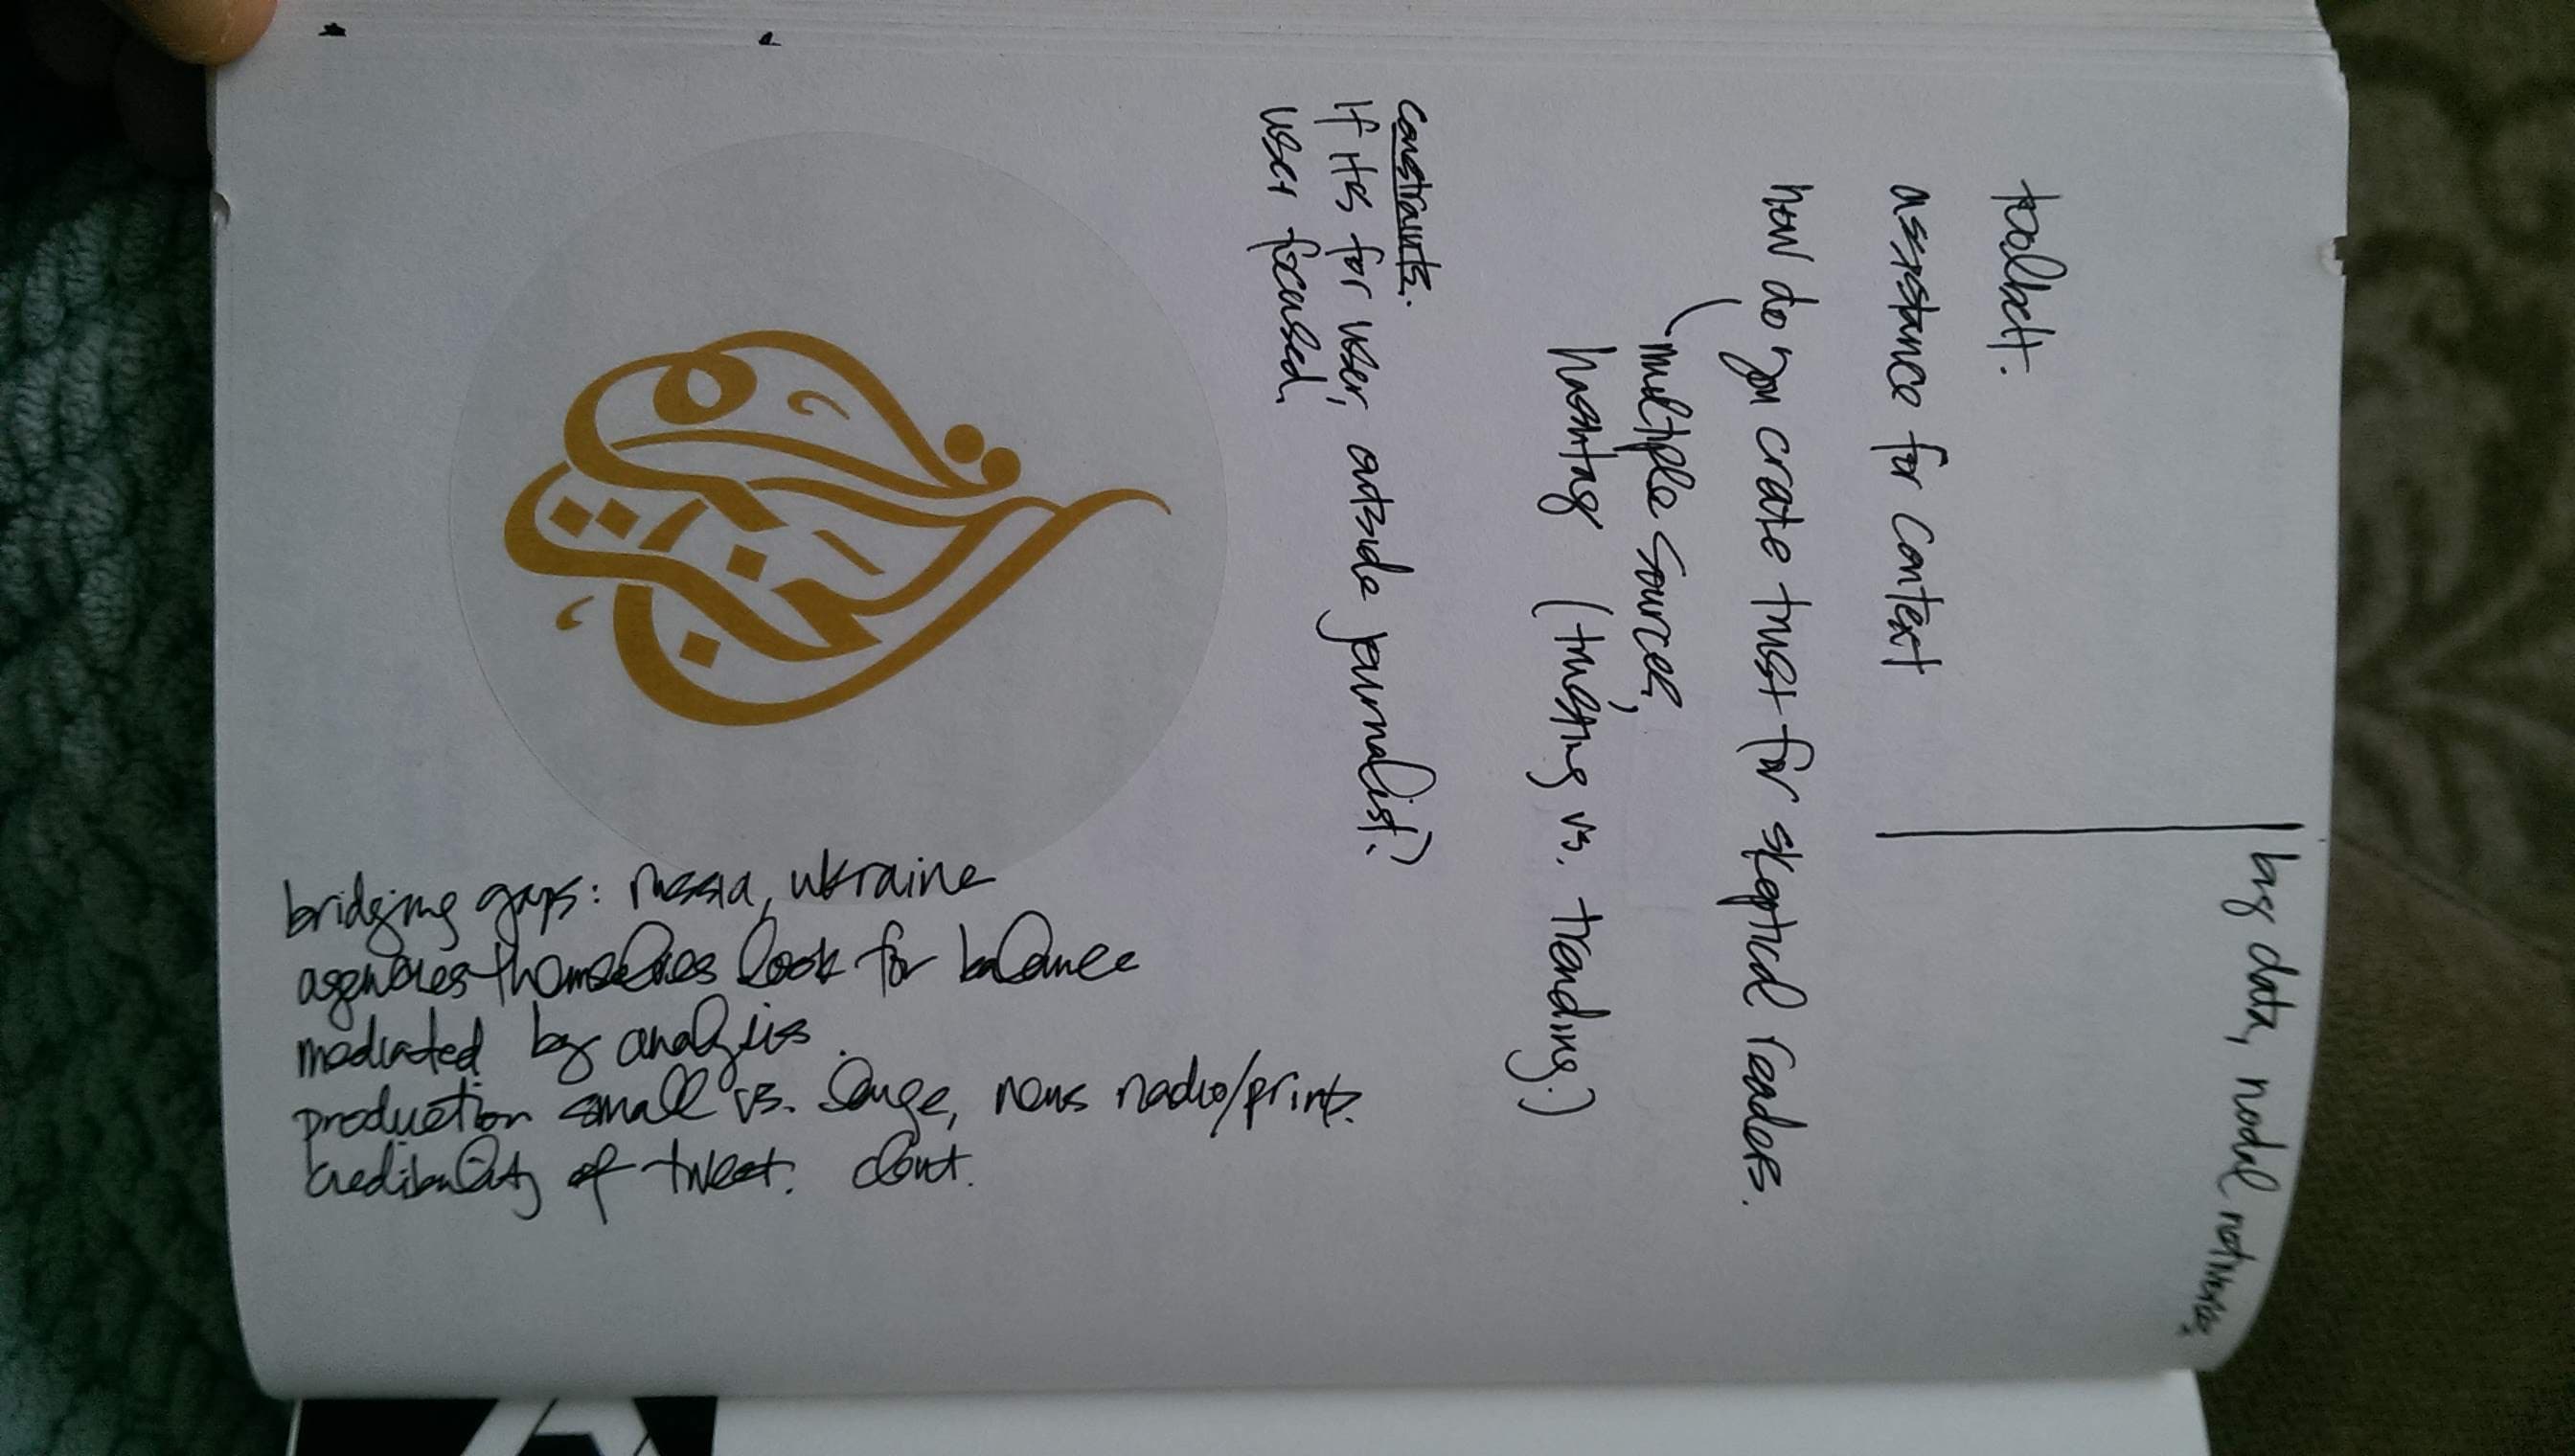 toolbelt.
assistance for context
how do you crate trust for skeptical readers.
multiple sources,
hashtag (trusting vs. trending.)
constraints.
If its for user, outside journalist.)
user focused.
big data, nodal networks,
bridging gaps: russia, ukraine
agencies themselves look for balance
mediated by analysis.
production small vs. large, news radio/print.
credibility of tweet. clout.
الجزيرة
A